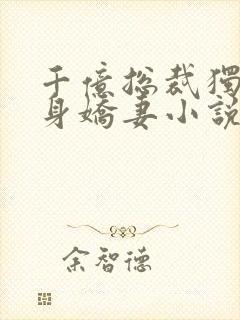 千億总裁獨
身嬌妻小説
余智德